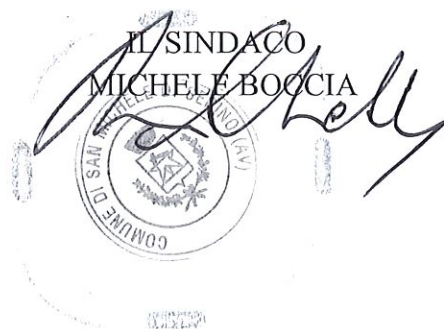 IL SINDACO
MICHELE BOCCIA
COMUNE DI SAN MICHELE DI SERINO (AV)